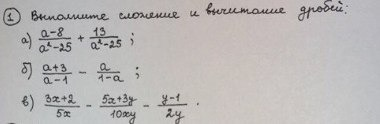 ① Выполните сложение и вычитание дробей:
а) (a-8)/(a²-25) + 13/(a²-25) ;
б) (a+3)/(a-1) - a/(1-a) ;
в) (3x+2)/(5x) - (5x+3y)/(10xy) - (y-1)/(2y) .